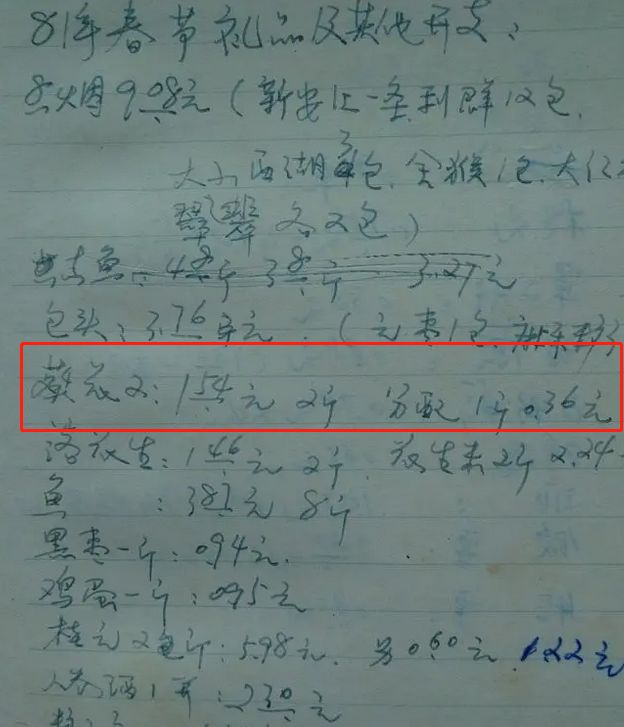 81年春节礼品及其他开支:
香烟9.08元(新安江一条利群12包,
大小西湖3包,金猴1包,大红
翡翠各2包)
鱼:4 斤 3 斤 3.27元
包头:3.76元.(元枣1包,
葵花子:1.54元 2斤 另配1斤0.36元
落花生:1.46元 2斤,花生米2斤2.24
鱼:3.83元 8斤
黑枣一斤:0.94元.
鸡蛋一斤:0.95元
桂元2包斤:5.98元. 另0.60元 1.22元
1斤:2.30元